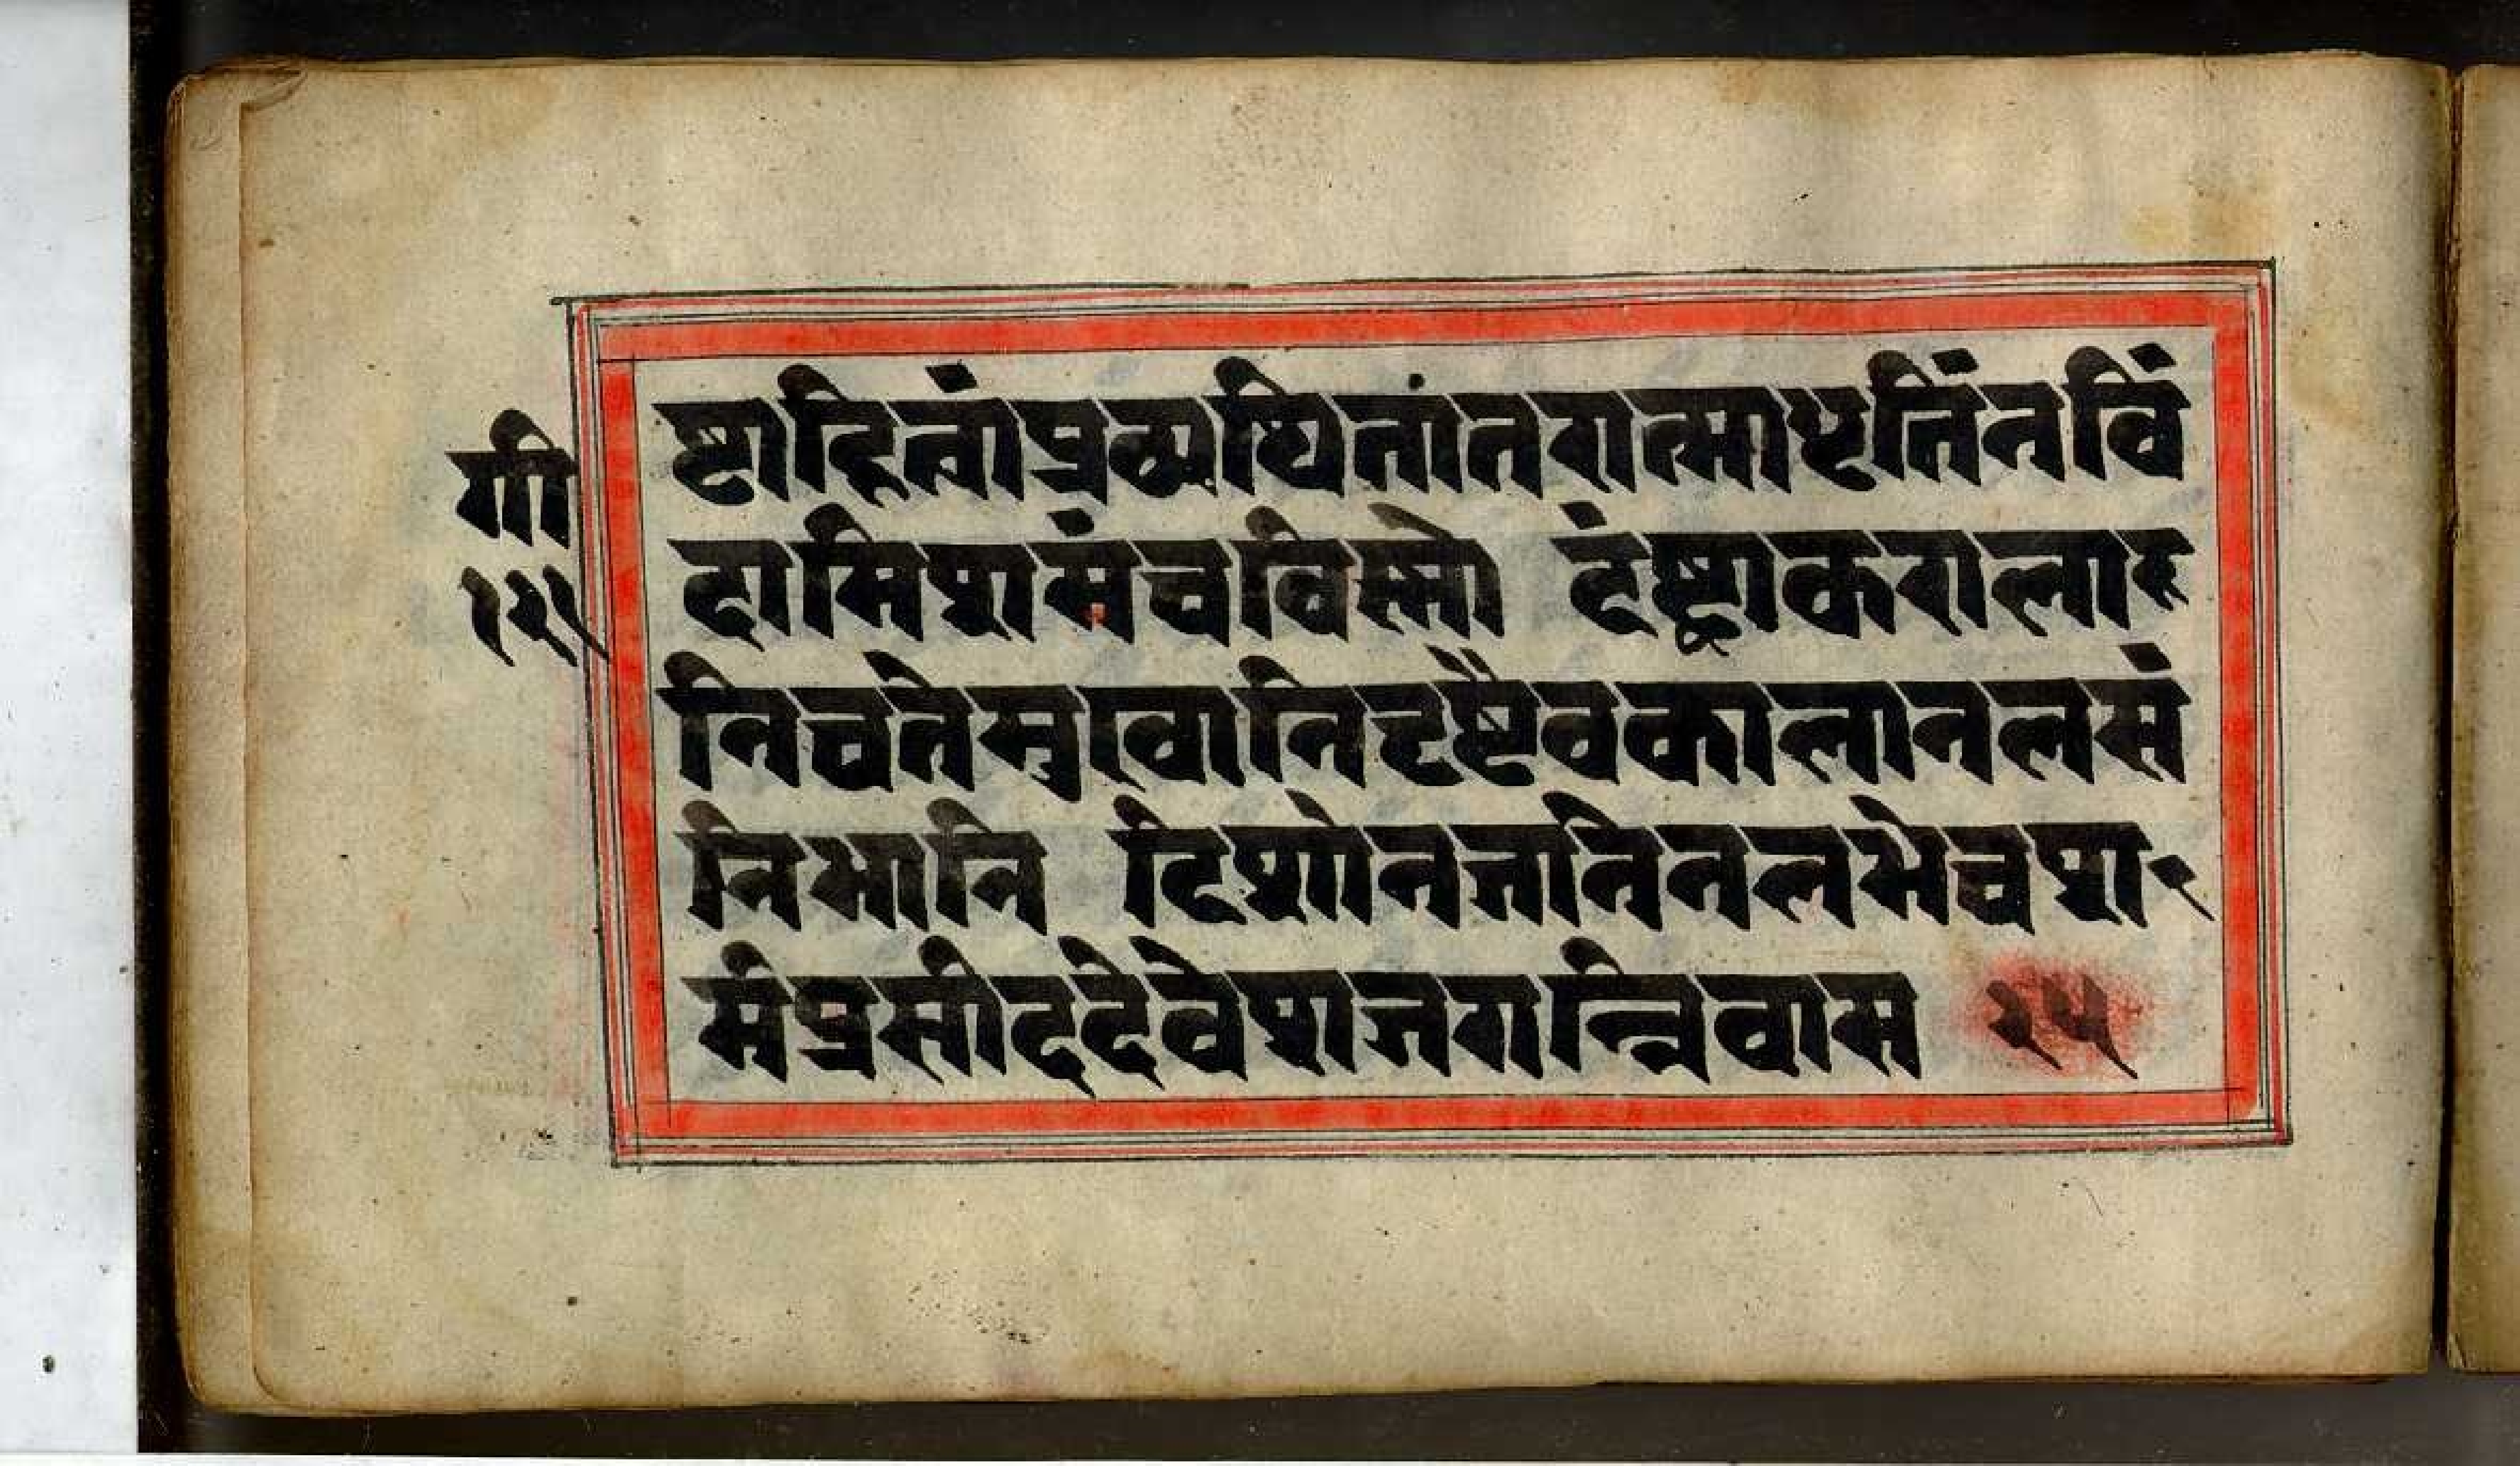 ष्टाहित्वांप्रव्यथितांतरात्माधृतिंनविं
गी
दामिशमंचविस्मो दंष्ट्राकरालार
१२५
निचतेमुखानिदृष्ट्वैवकालानलसं
निभानि दिशोनजानेनलभेचशर
मंप्रसीददेवेशजगन्निवास २५